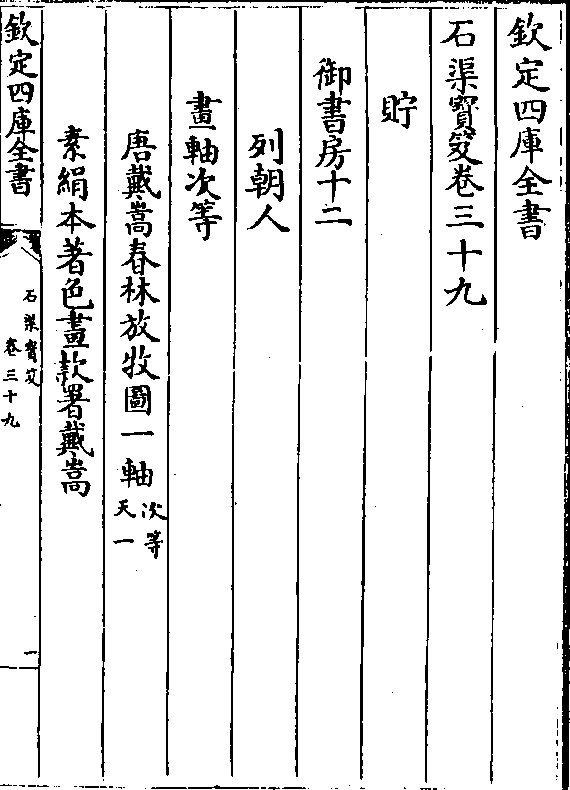 欽定四庫全書
石渠寳笈卷三十九
貯
御書房十二
列朝人
畫軸次等
唐戴嵩春林放牧圖一軸
次等
天一
素絹本著色畫款署戴嵩
欽定四庫全書
石渠寳笈
卷三十九
一